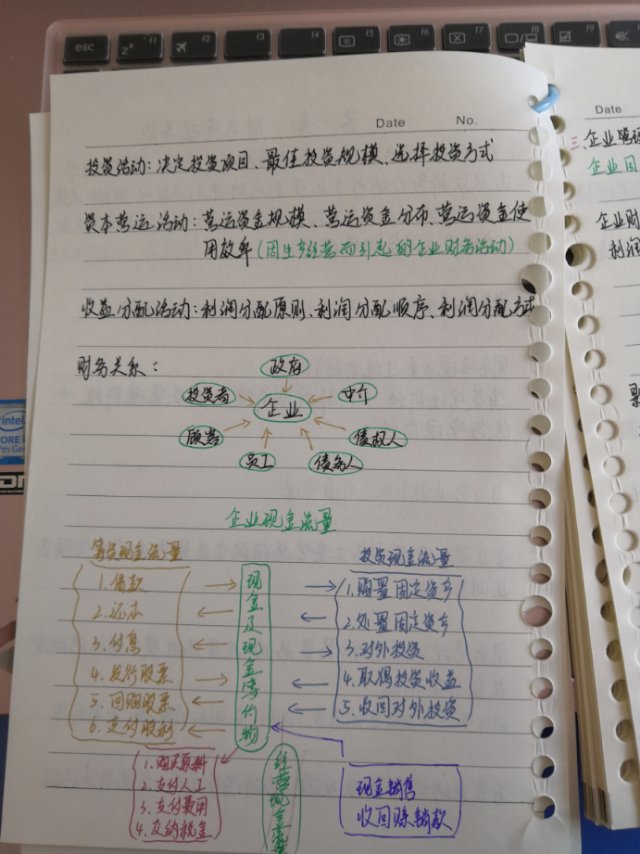 esc
f1
f2
f3
f4
f5
f6
f7
f8
f9
Date No.
Date
投资活动：决定投资项目、最佳投资规模、选择投资方式
资本营运活动：营运资金规模、营运资金分布、营运资金使
用效率（因生产经营而引起的企业财务活动）
收益分配活动：利润分配原则、利润分配顺序、利润分配方式
财务关系：
政府
投资者
企业
中介
顾客
债权人
员工
债务人
企业现金流量
筹资现金流量
投资现金流量
1.借款
2.还本
3.付息
4.发行股票
5.回购股票
6.支付股利
现金及现金等价物
1.购置固定资产
2.处置固定资产
3.对外投资
4.取得投资收益
5.收回对外投资
1.购买原料
2.支付人工
3.支付费用
4.交纳税金
经营现金流量
现金销售
收回赊销款
三.企业
企业目
企业财
利润
intel
CORE i
7th Gen